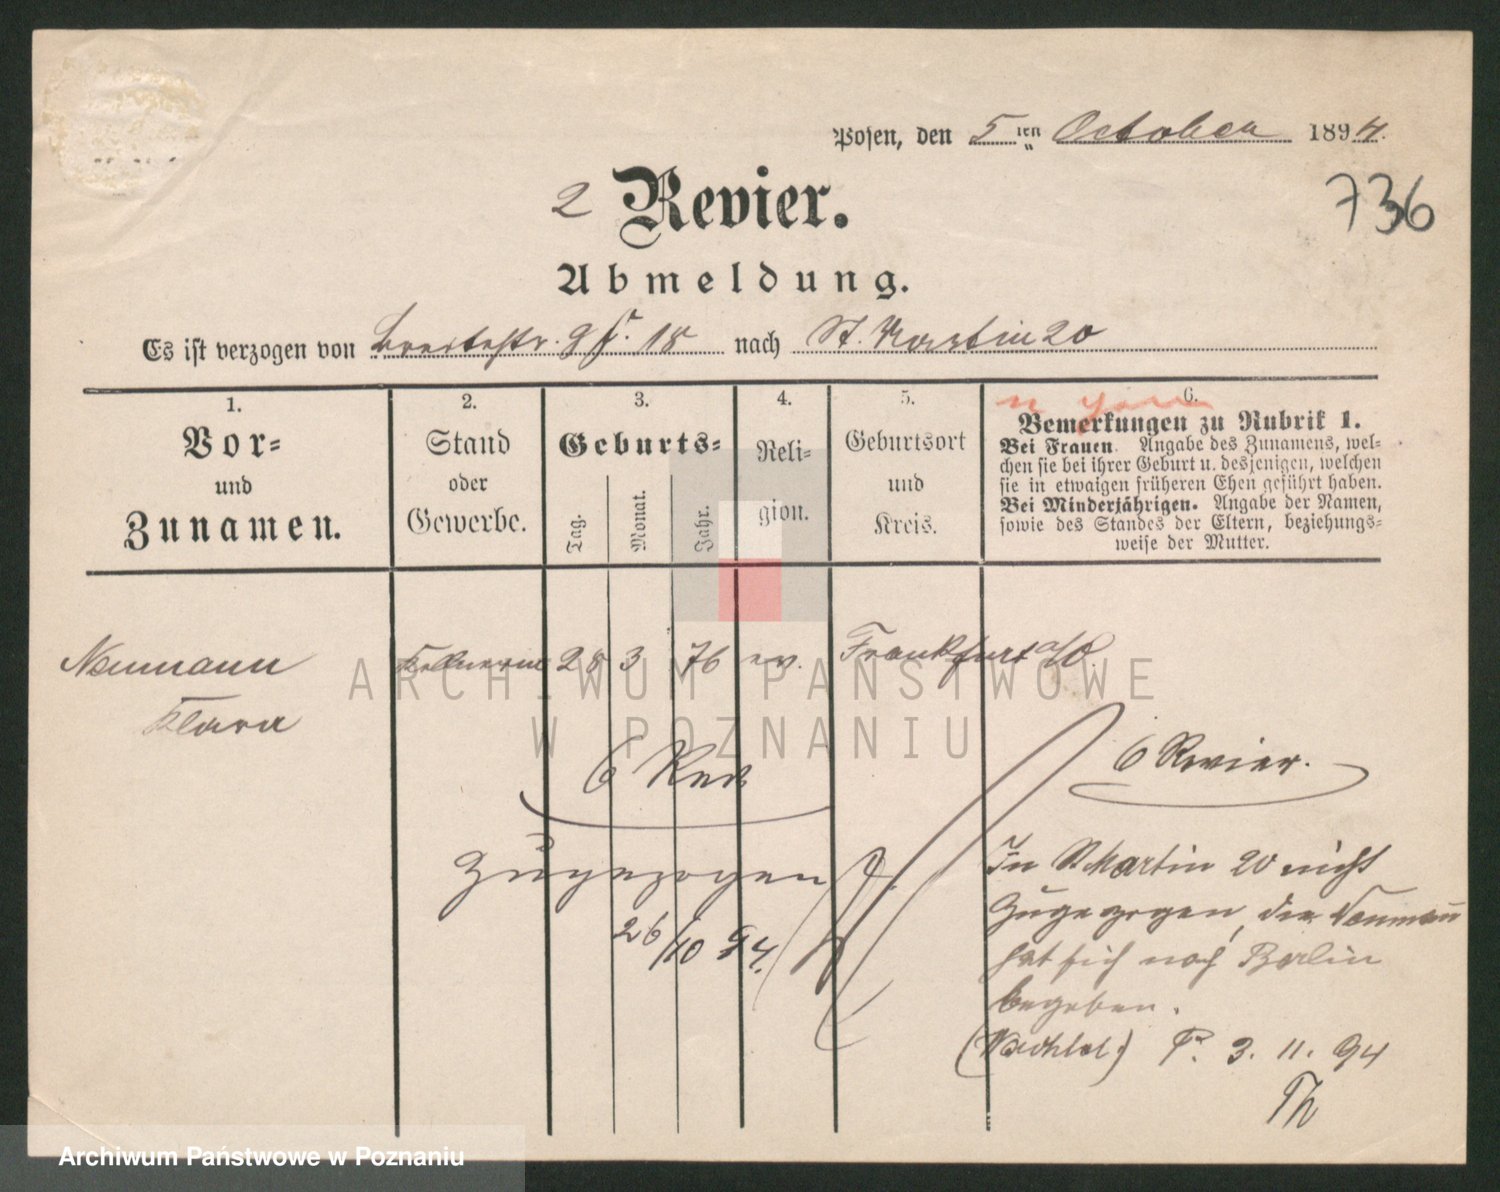 Posen, den 5 ten October 1894.
736
2 Revier.
Abmeldung.
Es ist verzogen von Breitestr. 9 18 nach St. Martin 20
1.
Vor-
und
Zunamen.
2.
Stand
oder
Gewerbe.
3.
Geburts-
Tag.
Monat.
Jahr.
4.
Reli-
gion.
5.
Geburtsort
und
Kreis.
6.
Bemerkungen zu Rubrik 1.
Bei Frauen. Angabe des Zunamens, wel-
chen sie bei ihrer Geburt u. desjenigen, welchen
sie in etwaigen früheren Ehen geführt haben.
Bei Minderjährigen. Angabe der Namen,
sowie des Standes der Eltern, beziehungs-
weise der Mutter.
Neumann Kellnerin 28 3 76 ev. Frankfurt a/O.
Klara
6 Rev
zugezogen
26/10 94.
6 Revier.
In St. Martin 20 nicht
zugezogen, die Neumann
hat sich nach Berlin
begeben.
P. 3. 11. 94
Th
ARCHIWUM PAŃSTWOWE
W POZNANIU
Archiwum Państwowe w Poznaniu